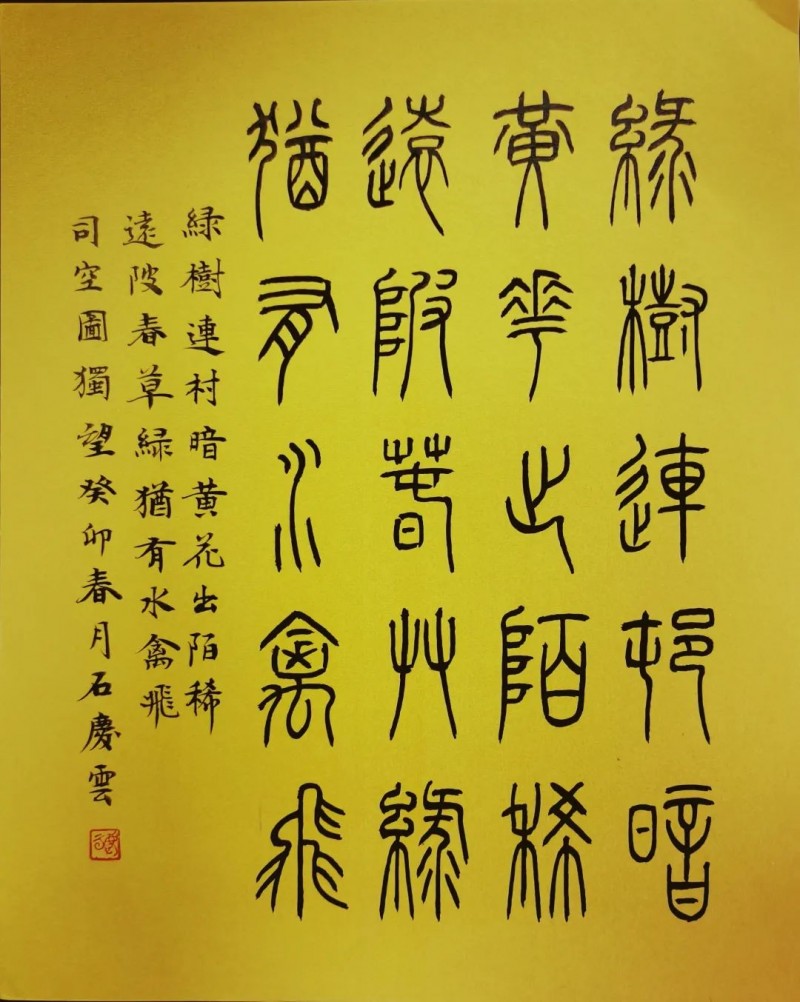 綠樹連邨暗
黃花出陌稀
遠陂春艸綠
猶有水禽飛
緑樹連村暗黄花出陌稀
遠陂春草緑猶有水禽飛
司空圖獨望癸卯春月石慶雲